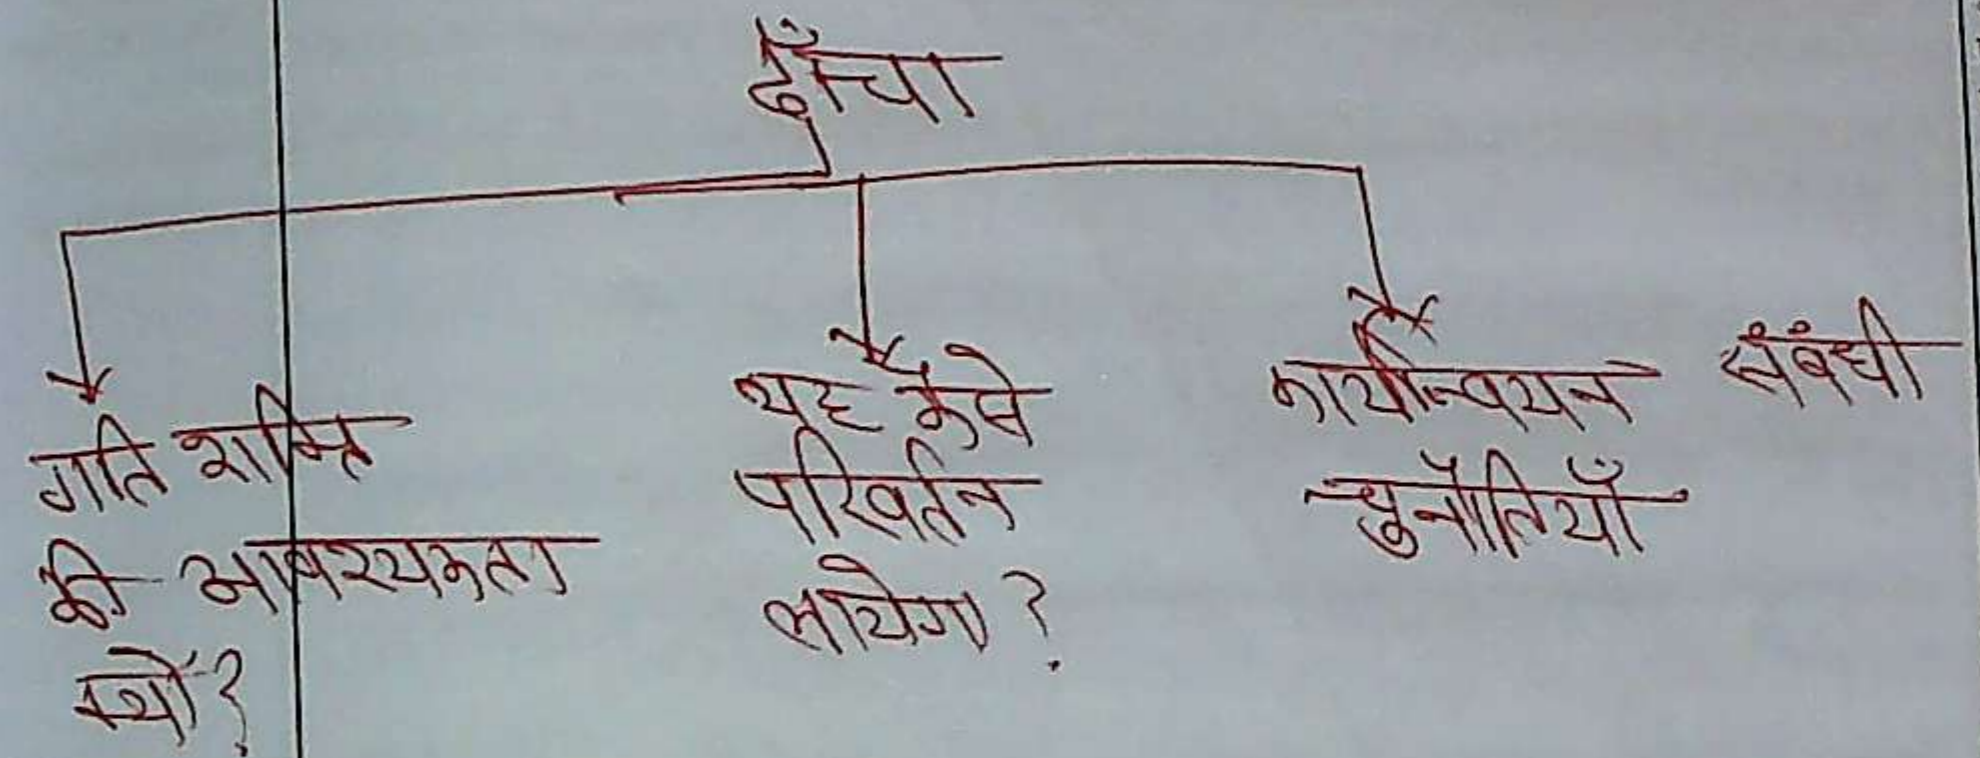 ढाँचा
गति शक्ति
की आवश्यकता
क्यों?
यह कैसे
परिवर्तन
लायेगा?
कार्यान्वयन संबंधी
चुनौतियाँ